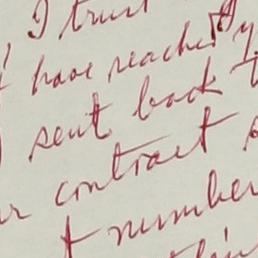 I trust
have reached y
sent back t
contract
t number